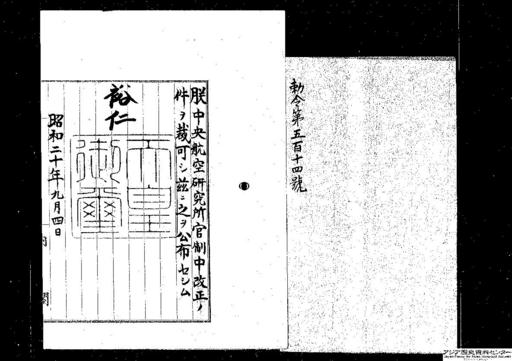 勅令第五百十四號
朕中央航空研究所官制中改正ノ
件ヲ裁可シ茲ニ之ヲ公布セシム
裕仁
天皇
御璽
昭和二十年九月四日
内閣
アジア歴史資料センター